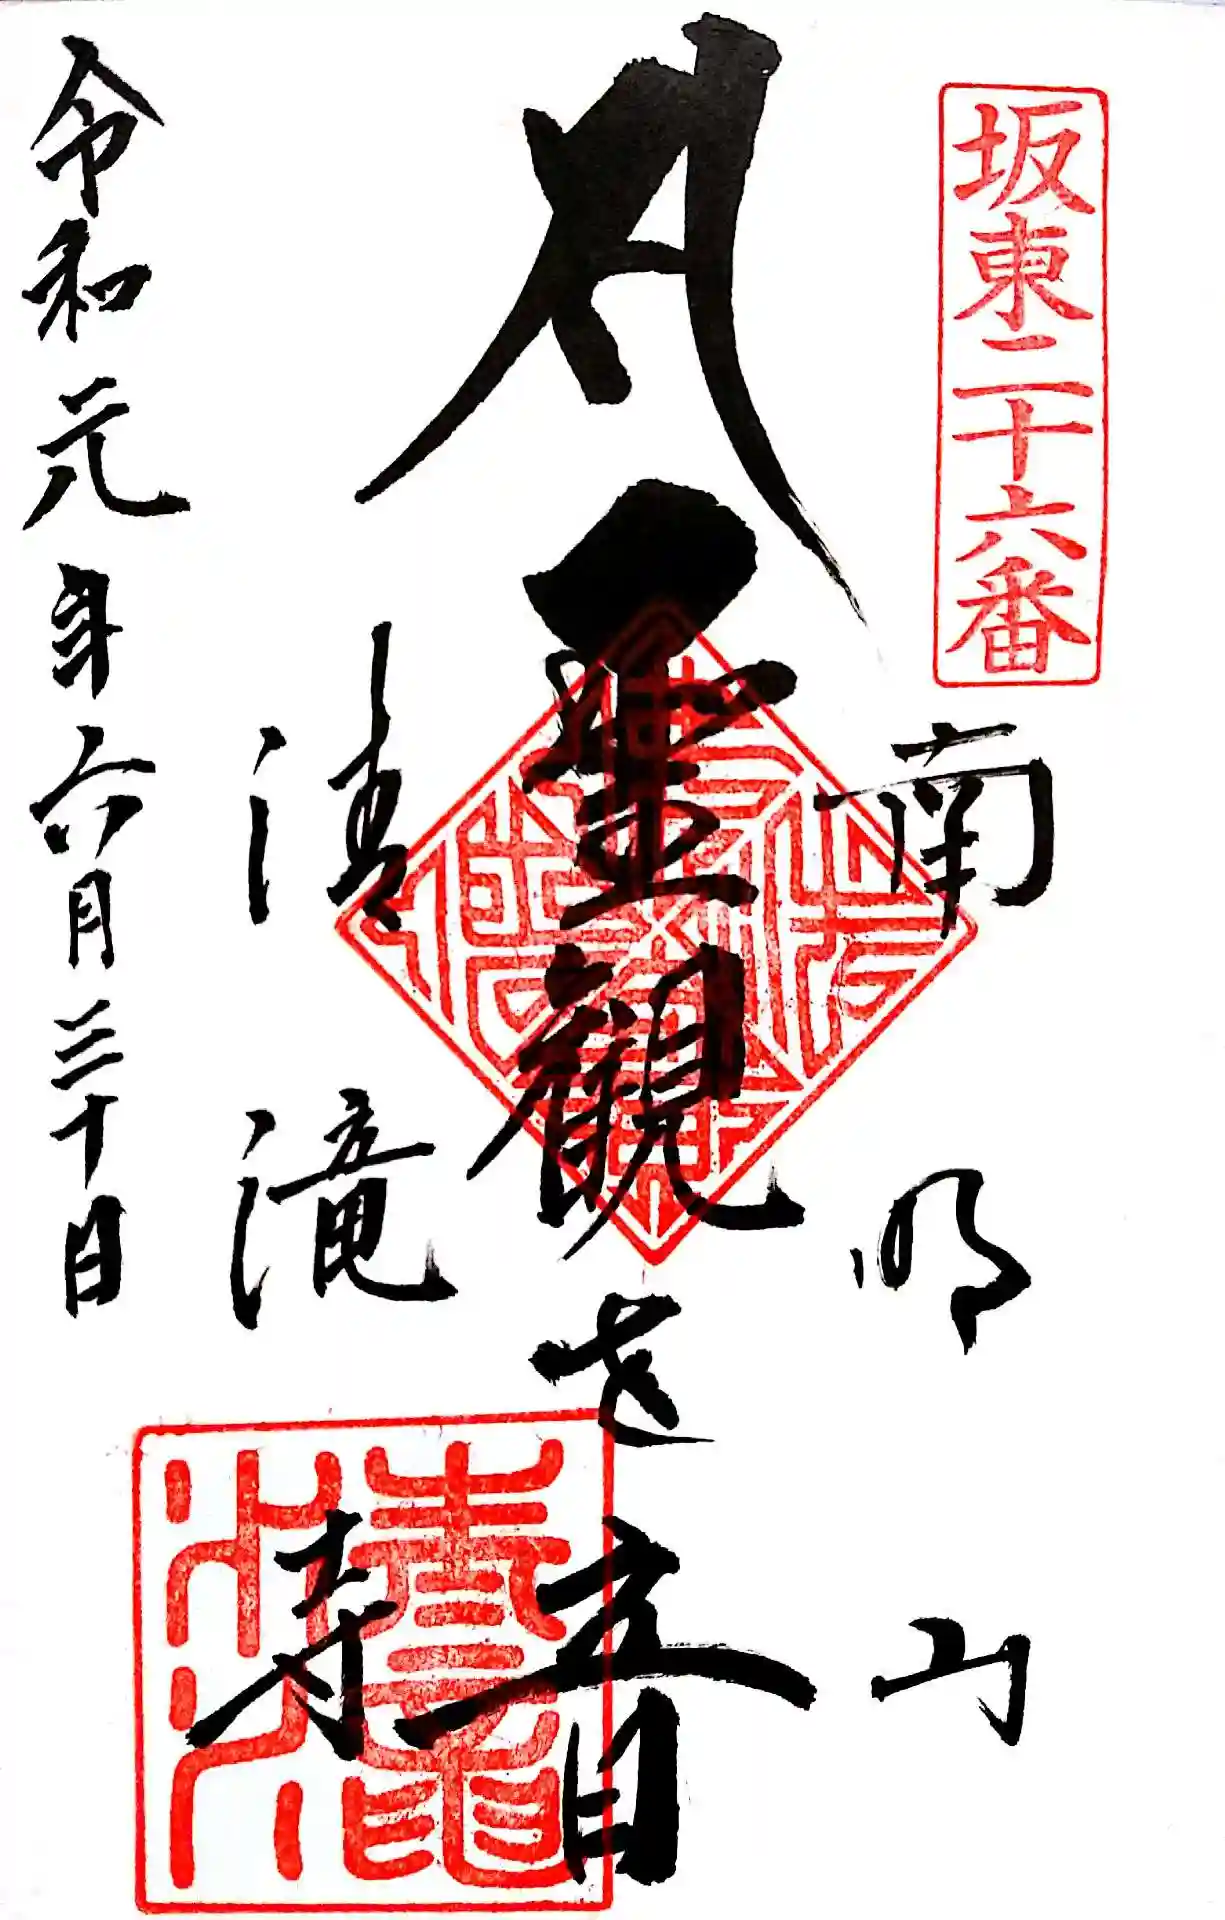 坂東二十六番
南明山
聖観世音
清滝寺
令和元年六月三十日